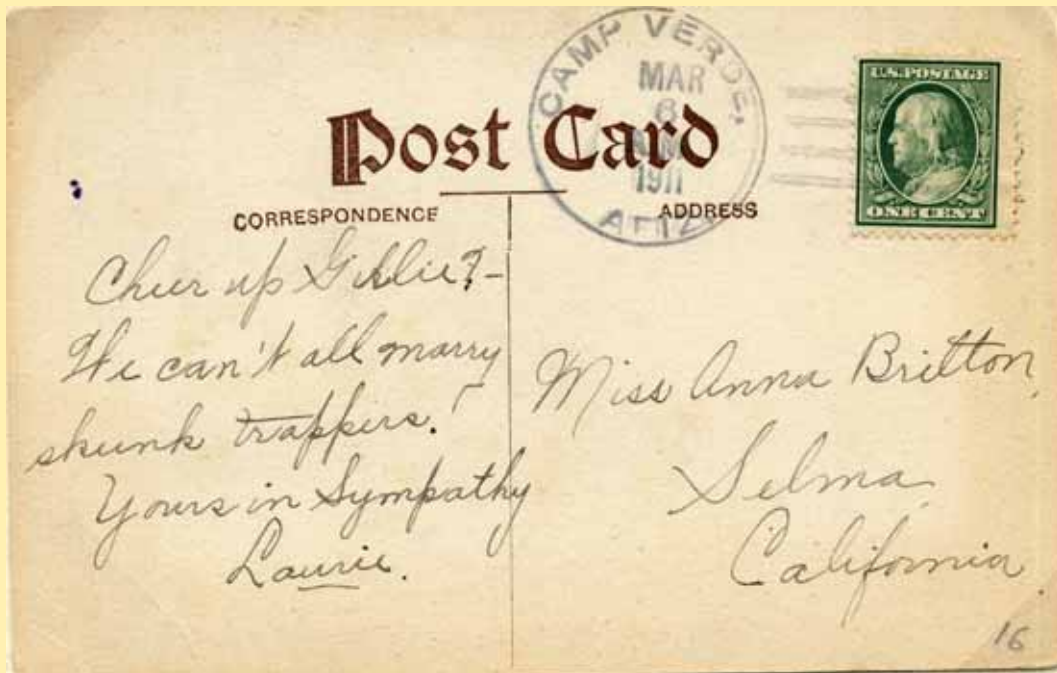 CAMP VERDE,
MAR
6
1911
ARIZ.
U.S. POSTAGE
ONE CENT
Post Card
CORRESPONDENCE
ADDRESS
Cheer up
We can't all marry
skunk trappers!
Yours in Sympathy
Laurie.
Miss Anna Britton,
Selma,
California
16